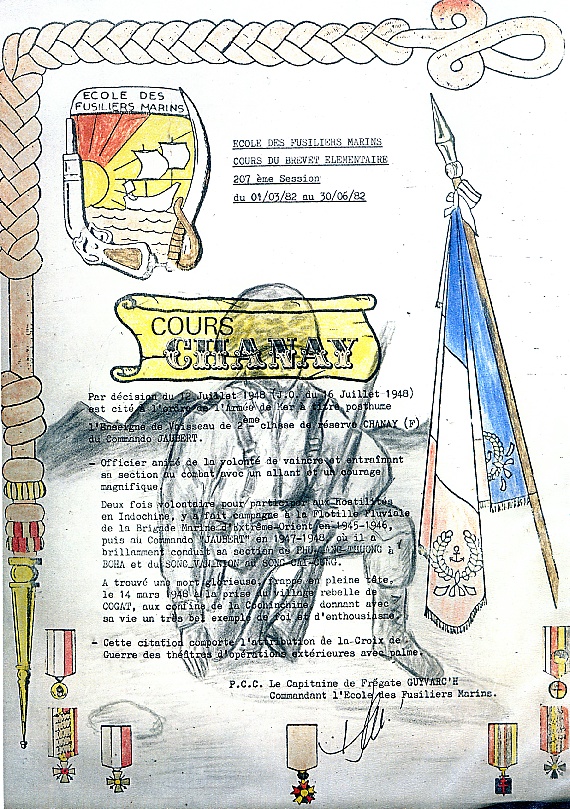 ECOLE DES
FUSILIERS MARINS
ECOLE DES FUSILIERS MARINS
COURS DU BREVET ELEMENTAIRE
207 ème Session
du 01/03/82 au 30/06/82
COURS
CHANAY
Par décision du 12 Juillet 1948 (J.O. du 16 Juillet 1948)
est cité à l'ordre de l'Armée de Mer à titre posthume
l'Enseigne de Vaisseau de 2ème classe de réserve CHANAY (F)
du Commando JAUBERT.
- Officier animé de la volonté de vaincre et entraînant
sa section au combat avec un allant et un courage
magnifique.
Deux fois volontaire pour participer aux hostilités
en Indochine, y a fait campagne à la Flotille Fluviale
de la Brigade Marine d'Extrême-Orient en 1945-1946,
puis au Commando "JAUBERT" en 1947-1948, où il a
brillamment conduit sa section de à
et du SONG
A trouvé une mort glorieuse, frappé en pleine tête,
le 14 mars 1948 à la prise du village rebelle de
COGAT, aux confins de la Cochinchine, donnant avec
sa vie un très bel exemple de foi et d'enthousiasme.
- Cette citation comporte l'attribution de la Croix de
Guerre des théâtres d'opérations extérieures avec palme.
P.C.C. Le Capitaine de Frégate GUYVARC'H
Commandant l'Ecole des Fusiliers Marins.